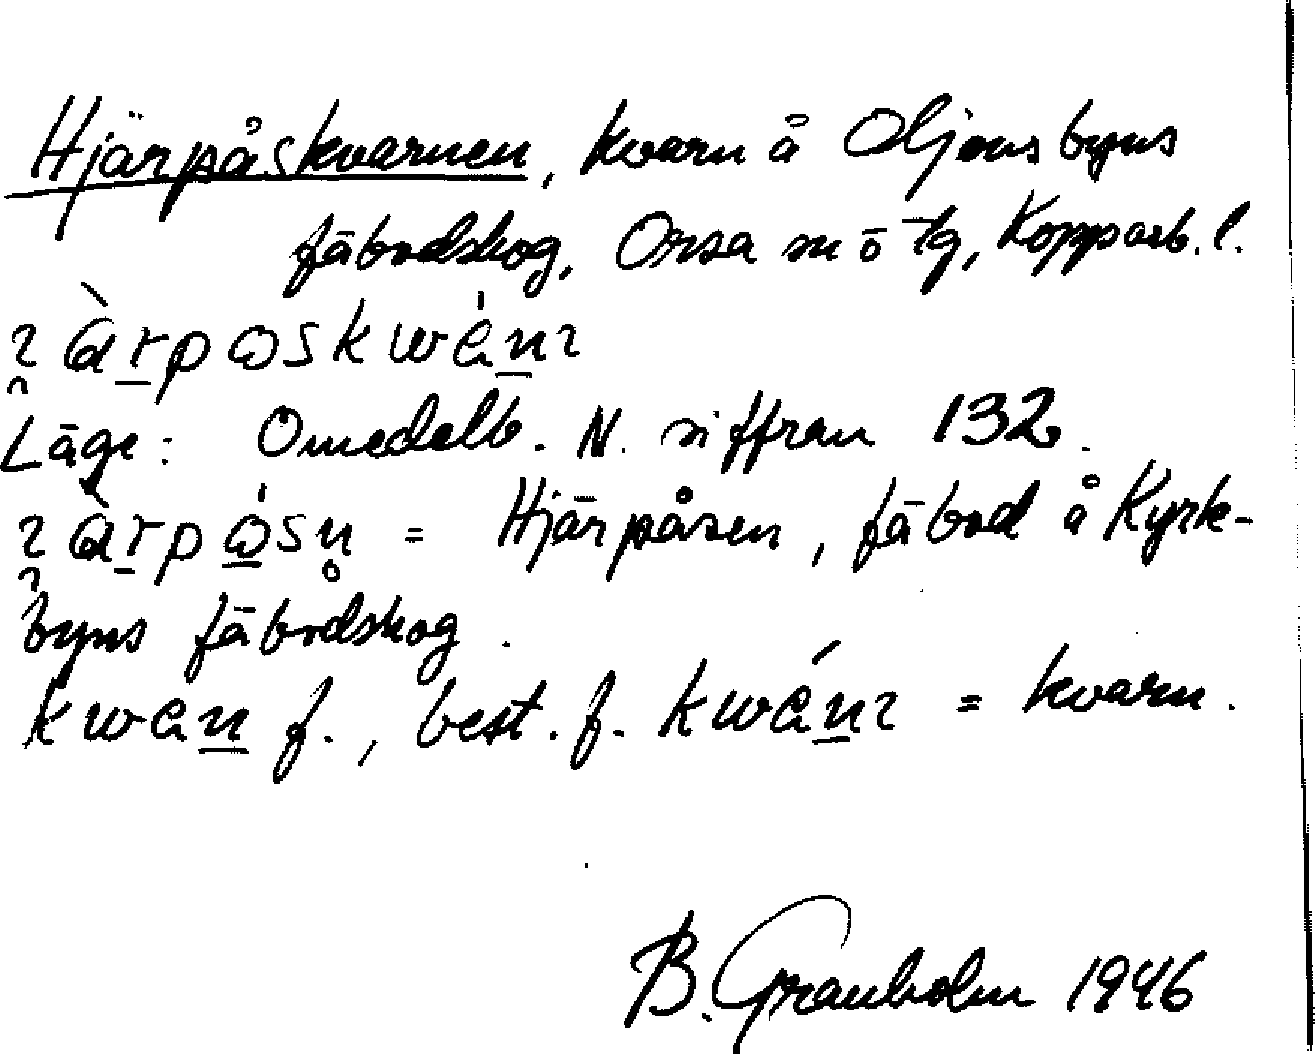 Hjärpåskvarnen, kvarn å Oljonsbyns
fäbodskog, Orsa sn o tg, Kopparb. l.
Läge: Omedelb. N. siffran 132.
= Hjärpåsen, fäbod å Kyrk-
byns fäbodskog.
f., best. f. = kvarn.
B. Granholm 1946